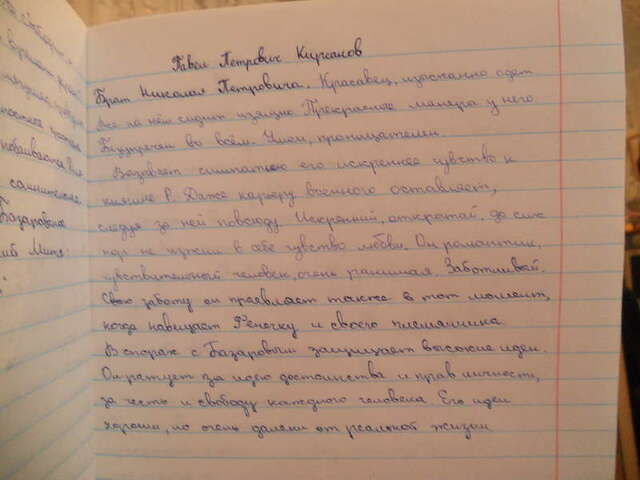 Павел Петрович Кирсанов
Брат Николая Петровича. Красавец, изысканно одет
Все на нём сидит изящно Прекрасные манеры у него
Безупречен во всём. Умен, проницателен.
Вызывает симпатию его искреннее чувство к
княгине Р. Даже карьеру военного оставляет,
следуя за ней повсюду. Искренний, открытый, до сих
пор не изжил в себе чувство любви. Он романтик,
чувствительный человек, очень ранимая. Заботливый.
Свою заботу он проявляет также в тот момент,
когда навещает Фенечку и своего племянника.
В спорах с Базаровым защищает высокие идеи.
Он ратует за идею достоинства и прав личности,
за честь и свободу каждого человека. Его идеи
хороши, но очень далеки от реальной жизни
Базаровские
Митя: